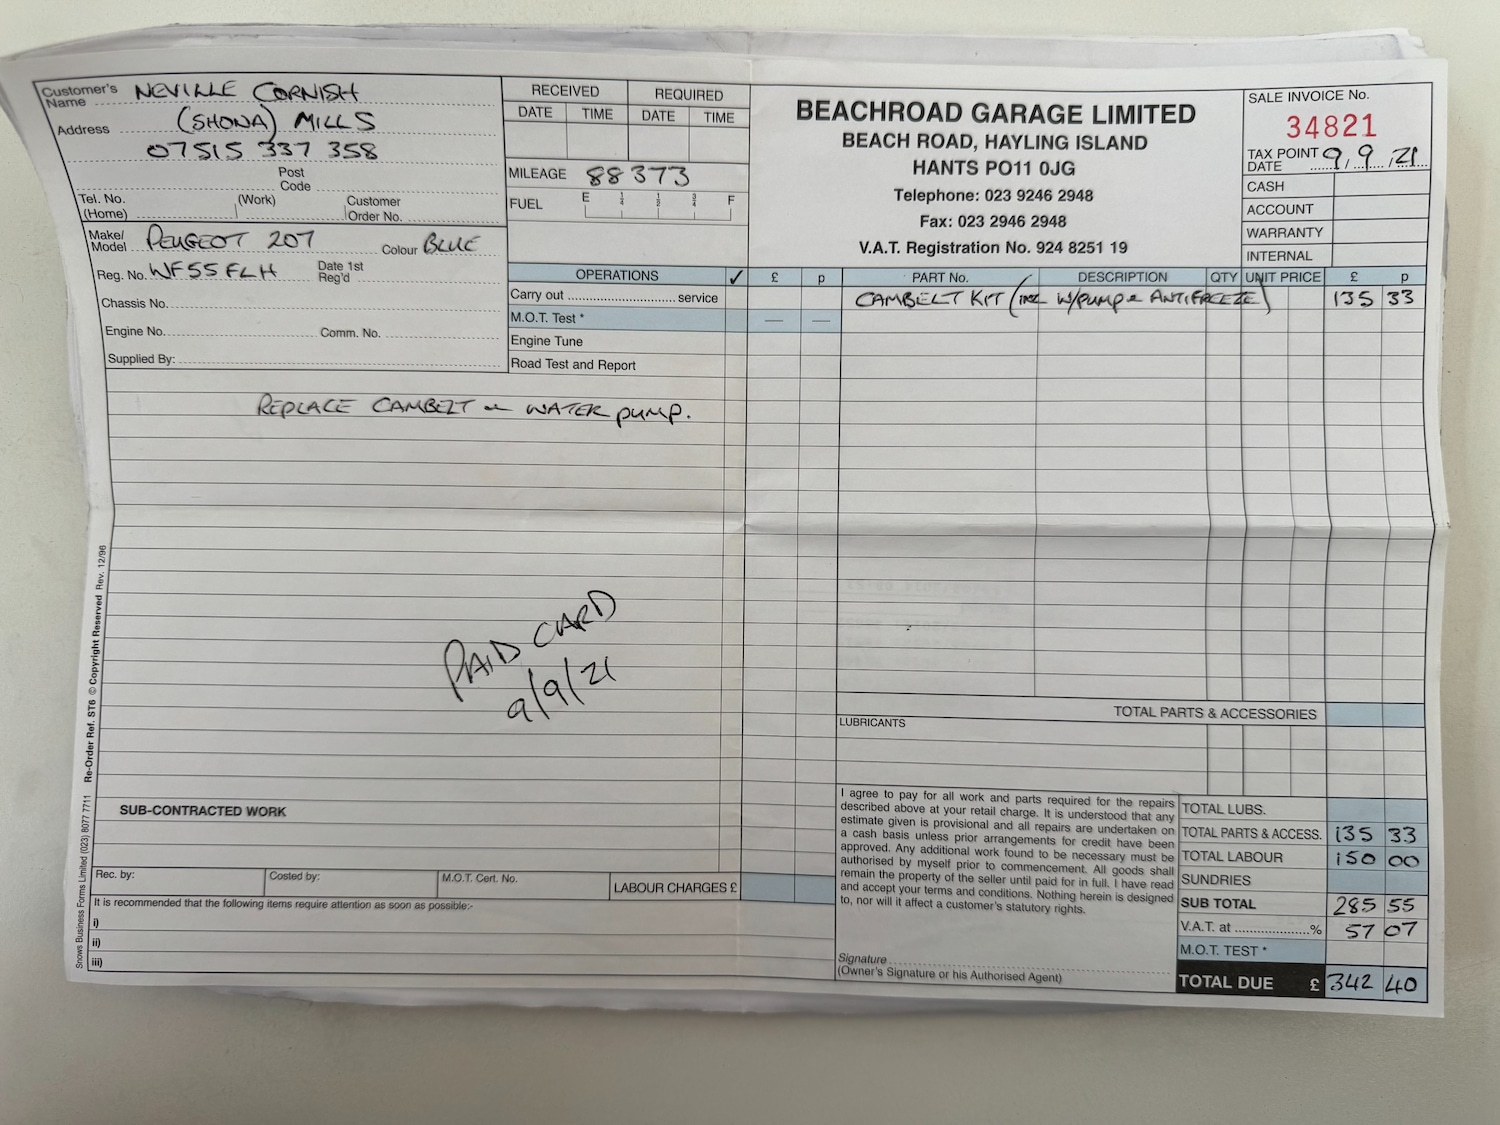 Customer's Name NEVILLE CORNISH
Address (SHONA) MILLS
07515 337 358
Post Code
Tel. No. (Home) (Work) Customer Order No.
Make/Model PEUGEOT 207 Colour BLUE
Reg. No. WF55FLH Date 1st Reg'd
Chassis No.
Engine No. Comm. No.
Supplied By:
RECEIVED REQUIRED
DATE TIME DATE TIME
MILEAGE 88373
FUEL E 1/4 1/2 3/4 F
BEACHROAD GARAGE LIMITED
BEACH ROAD, HAYLING ISLAND
HANTS PO11 0JG
Telephone: 023 9246 2948
Fax: 023 2946 2948
V.A.T. Registration No. 924 8251 19
SALE INVOICE No.
34821
TAX POINT DATE 9/9/21
CASH
ACCOUNT
WARRANTY
INTERNAL
OPERATIONS ✓ £ p
Carry out .............................. service
M.O.T. Test * — —
Engine Tune
Road Test and Report
PART No. DESCRIPTION QTY UNIT PRICE £ p
CAMBELT KIT (INC W/PUMP & ANTIFREEZE) 135 33
REPLACE CAMBELT & WATER PUMP.
PAID CARD
9/9/21
TOTAL PARTS & ACCESSORIES
LUBRICANTS
SUB-CONTRACTED WORK
Rec. by: Costed by: M.O.T. Cert. No. LABOUR CHARGES £
It is recommended that the following items require attention as soon as possible:-
i)
ii)
iii)
I agree to pay for all work and parts required for the repairs
described above at your retail charge. It is understood that any
estimate given is provisional and all repairs are undertaken on
a cash basis unless prior arrangements for credit have been
approved. Any additional work found to be necessary must be
authorised by myself prior to commencement. All goods shall
remain the property of the seller until paid for in full. I have read
and accept your terms and conditions. Nothing herein is designed
to, nor will it affect a customer's statutory rights.
Signature
(Owner's Signature or his Authorised Agent)
TOTAL LUBS.
TOTAL PARTS & ACCESS. 135 33
TOTAL LABOUR 150 00
SUNDRIES
SUB TOTAL 285 55
V.A.T. at ....................% 57 07
M.O.T. TEST *
TOTAL DUE £ 342 40
Snows Business Forms Limited (023) 8077 7711 Re-Order Ref. ST6 © Copyright Reserved Rev. 12/96